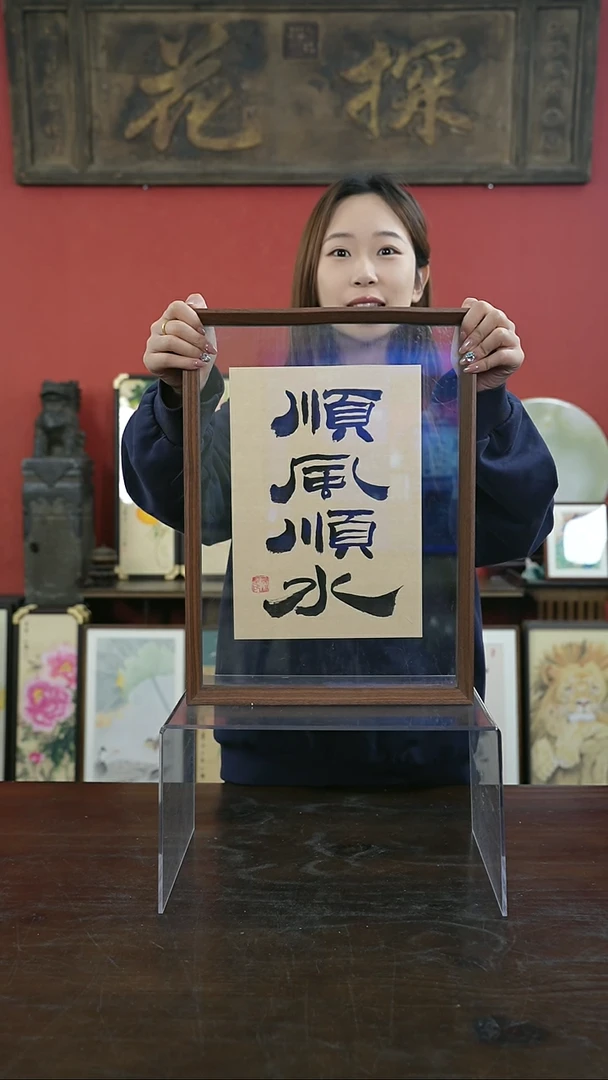 探花
順風順水